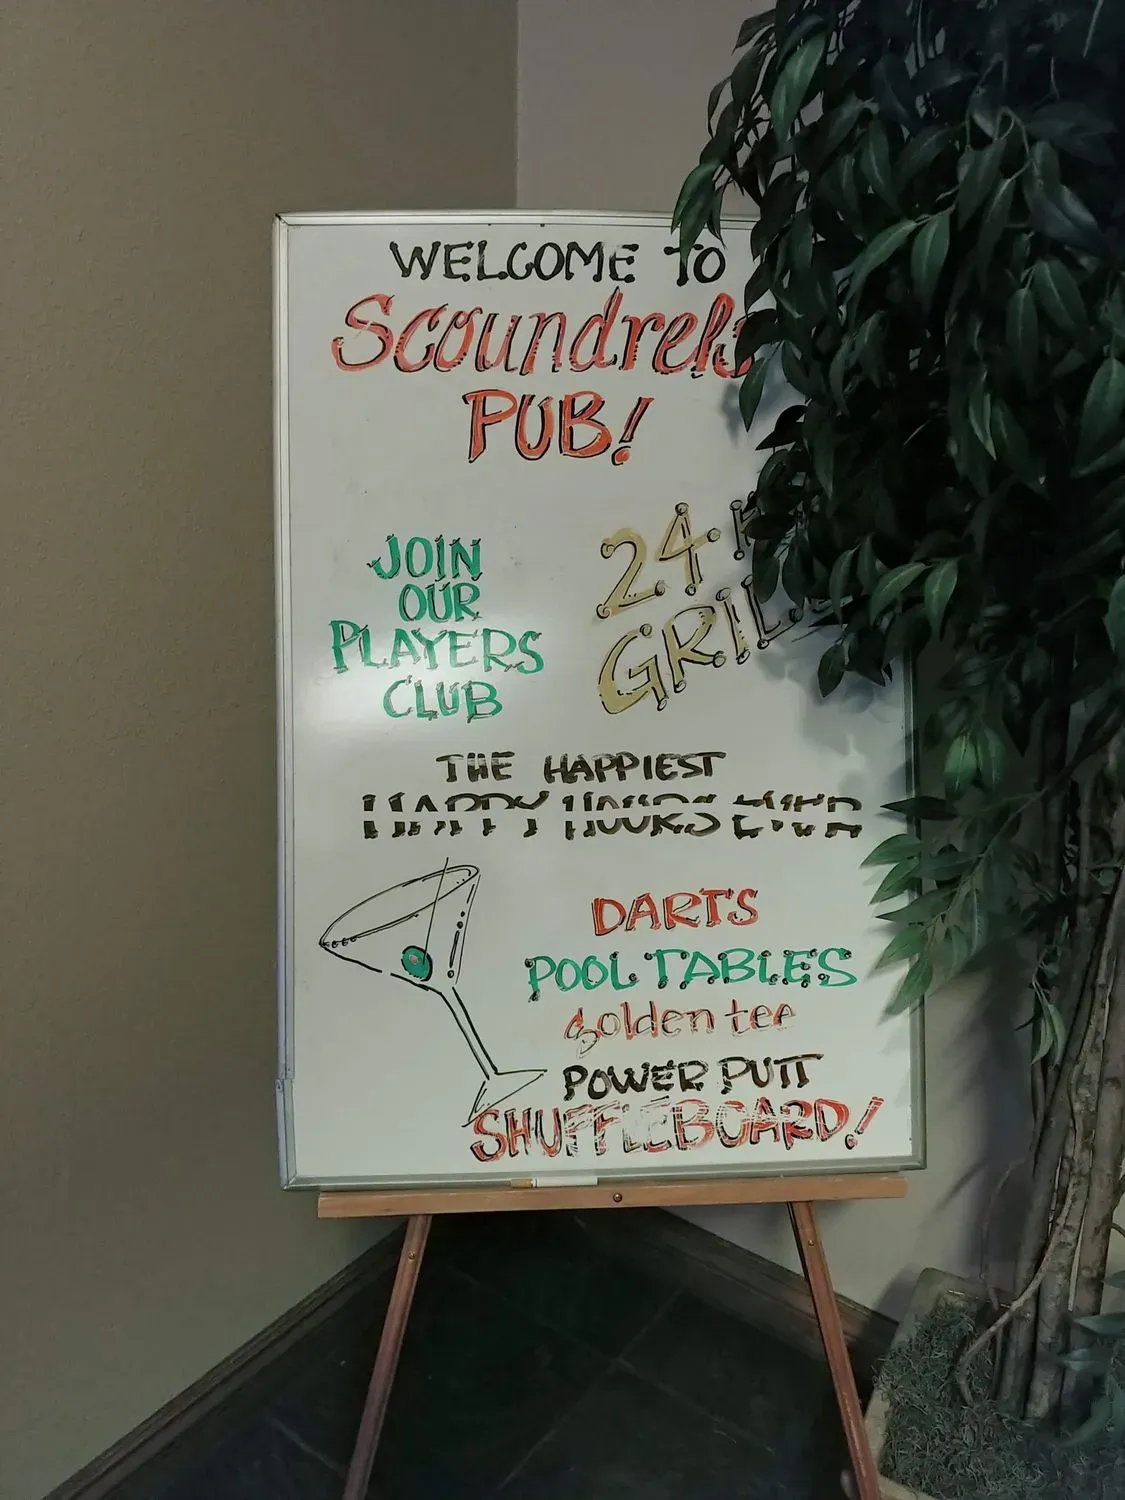 WELCOME TO
Scoundrels
PUB!
JOIN
OUR
PLAYERS
CLUB
24
GRILL
THE HAPPIEST
HAPPY HOURS EVER
DARTS
POOL TABLES
Golden tee
POWER PUTT
SHUFFLEBOARD!